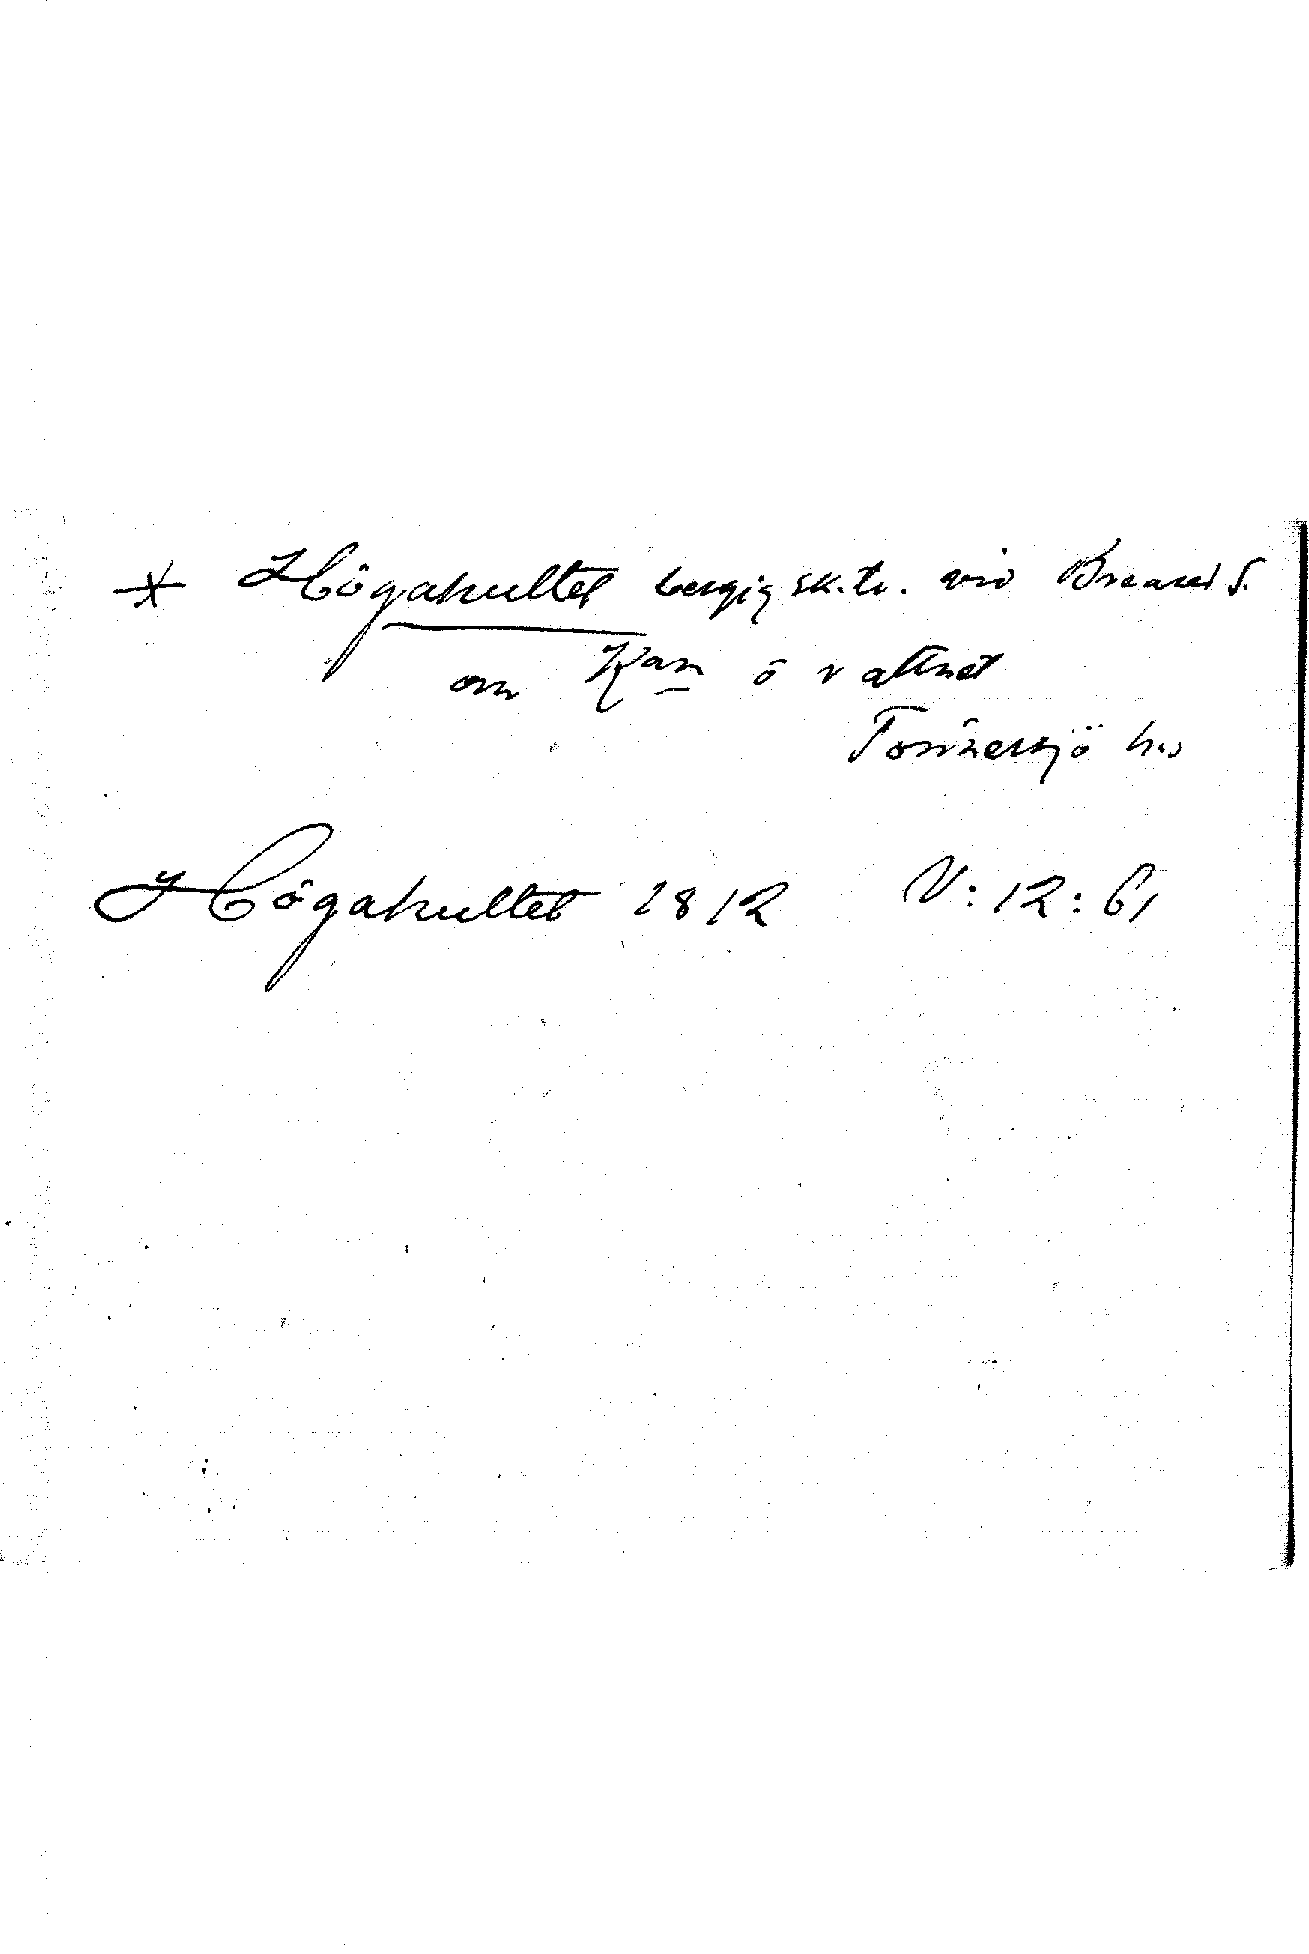 * Högakultet bergig sk.tr. vid Breared S.
om Kan ö vattnet
Tönnersjö hd
Högakultet 1812 V:12:61